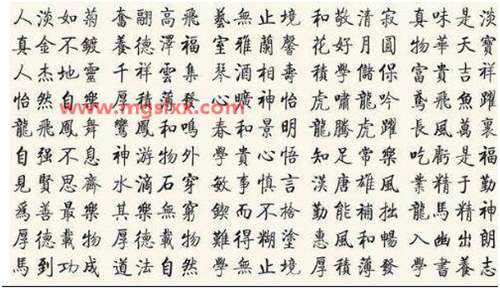 人淡如菊 奮翮高飛 藝無止境 和敬清寂 真味是淡
真金不鍍 養德澤福 室雅蘭馨 花好月圓 物華天寶
人杰地靈 千祥雲集 琴酒相壽 積學儲保 富貴吉祥
怡然自樂 厚積薄 心曠神怡 虎嘯龍吟 鳶飛魚躍
www.mgslxx.com
龍飛鳳舞 鸞鳳和鳴 春和景明 龍騰虎躍 長風萬裏
自强不息 神游物外 學貴心悟 知足常樂 吃虧是福
見賢思齊 水滴石穿 敏事慎言 漢唐雄風 業精于勤
爲善最樂 其樂無窮 鍥而不捨 勤能補拙 龍馬精神
厚德載物 厚德載物 難得糊塗 惠風和暢 入幽出朗
馬到功成 道法自然 學無止境 厚積薄發 學書養志